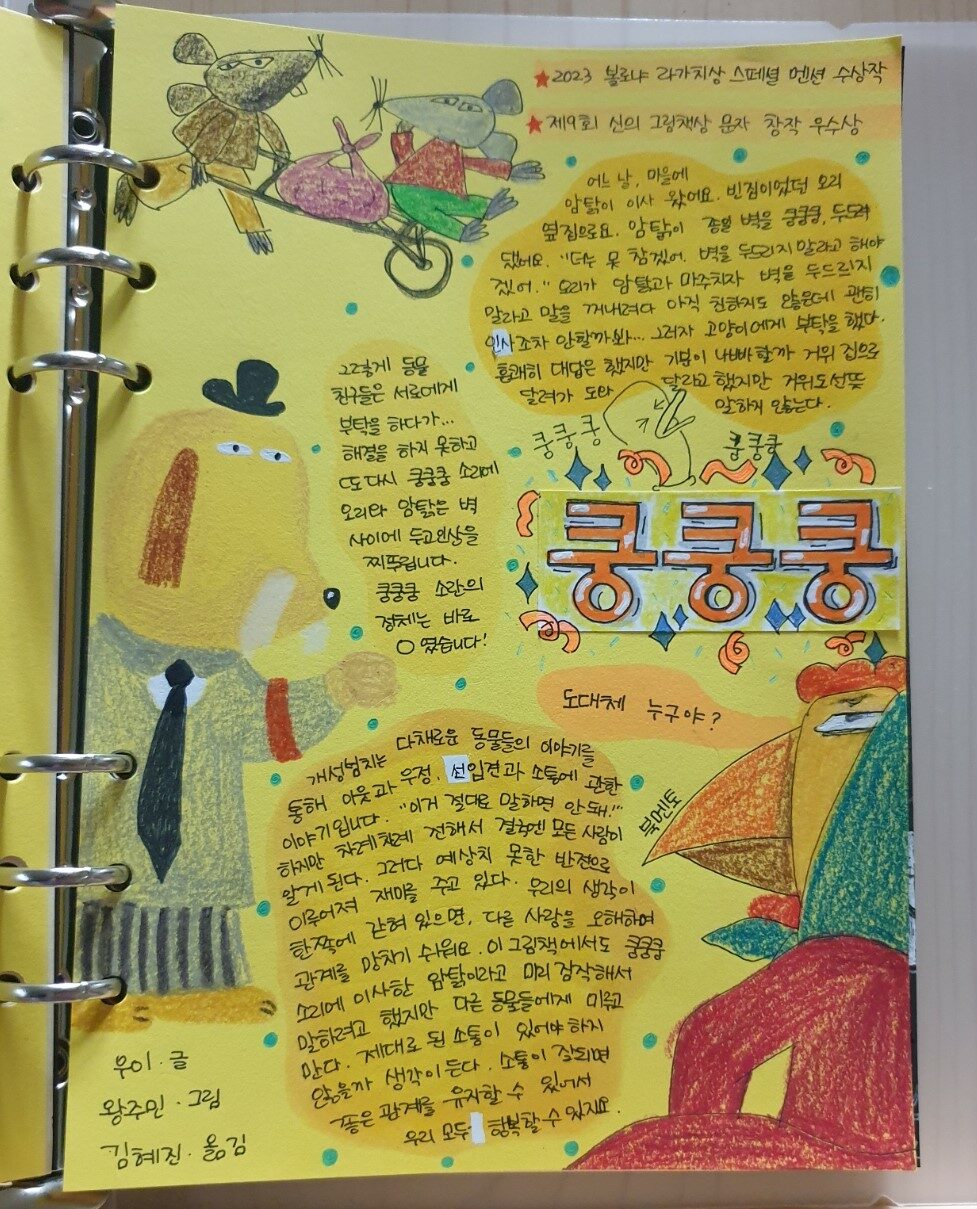 ★2023 볼로냐 라가치상 스페셜 멘션 수상작
★제9회 신의 그림책상 문자 창작 우수상
어느 날, 마을에
암탉이 이사 왔어요. 빈집이었던 오리
옆집으로요. 암탉이 종일 벽을 쿵쿵쿵, 두드려
댔어요. "더는 못 참겠어. 벽을 두드리지 말라고 해야
겠어." 오리가 암탉과 마주치자 벽을 두드리지
말라고 말을 꺼내려다 아직 친하지도 않은데 괜히
인사조차 안할까봐... 그러자 고양이에게 부탁을 했다.
흔쾌히 대답은 했지만 기분이 나빠할까 거위 집으로
달려가 도와 달라고 했지만 거위도 선뜻
말하지 않는다.
그렇게 동물
친구들은 서로에게
부탁을 하다가...
해결을 하지 못하고
또다시 쿵쿵쿵 소리에
오리와 암탉은 벽
사이에 두고 인상을
찌푸립니다.
쿵쿵쿵 소란의
정체는 바로
○였습니다!
쿵쿵쿵
쿵쿵쿵
쿵쿵쿵
도대체 누구야?
북멘토
개성넘치는 다채로운 동물들의 이야기를
통해 이웃과 우정, 선입견과 소통에 관한
이야기입니다. "이거 절대로 말하면 안돼!"
하지만 차례차례 전해서 결국엔 모든 사람이
알게 된다. 그러다 예상치 못한 반전으로
이루어져 재미를 주고 있다. 우리의 생각이
한쪽에 갇혀 있으면, 다른 사람을 오해하여
관계를 망치기 쉬워요. 이 그림책에서도 쿵쿵쿵
소리에 이사한 암탉이라고 미리 짐작해서
말하려고 했지만 다른 동물들에게 미루고
만다. 제대로 된 소통이 있어야 하지
않을까 생각이 든다. 소통이 잘되면
좋은 관계를 유지할 수 있어서
우리 모두 행복할 수 있지요.
우이 · 글
왕주민 · 그림
김혜진 · 옮김